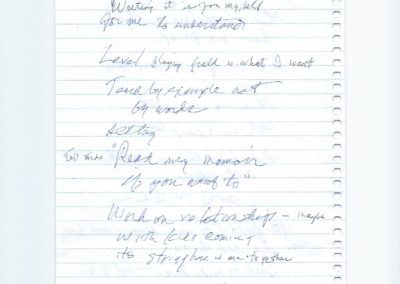 Writing it is for myself
for me to understand
Level playing field is what I want
Teach by example not
by words
acting
"Read my memoir
if you want to"
Work on relationships – maybe
with kids coming
its struggle me together